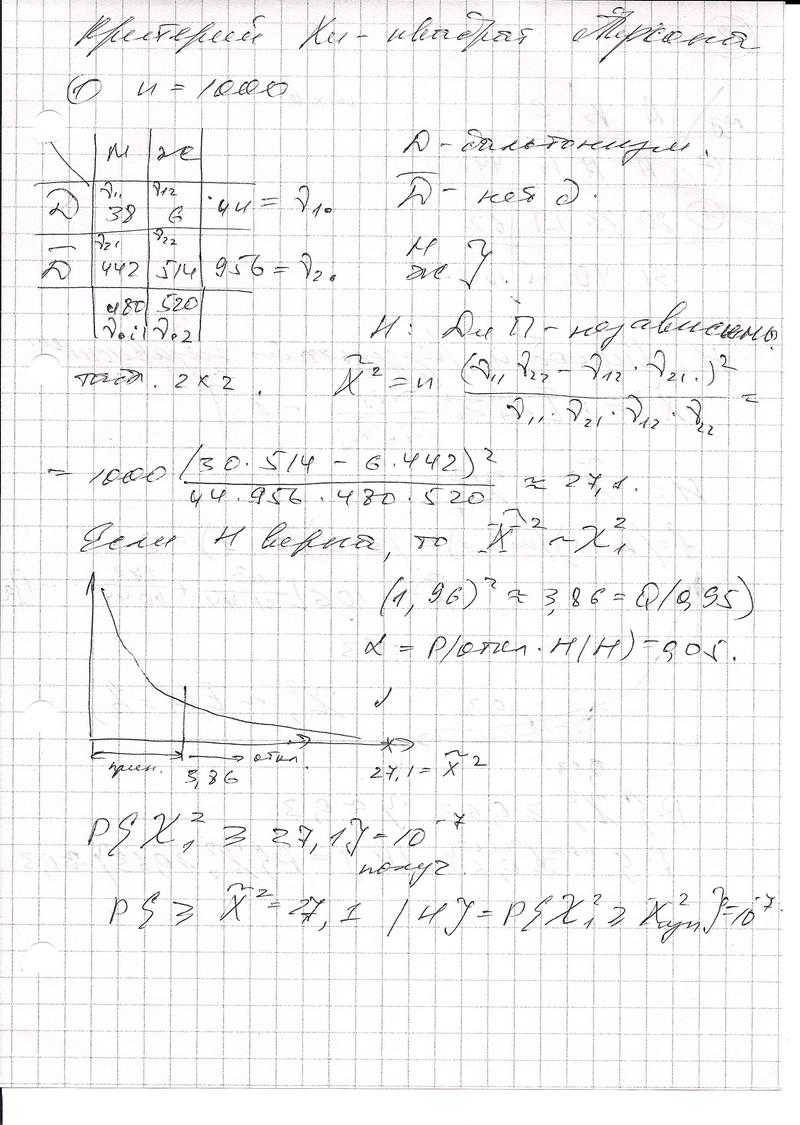 Критерий Хи-квадрат Пирсона
① n = 1000
М Ж
D ν₁₁ 38 ν₁₂ 6 44 = ν₁.
D̅ ν₂₁ 442 ν₂₂ 514 956 = ν₂.
480 520
ν.₁ ν.₂
D - дальтонизм.
D̅ - нет д.
М
Ж } .
H: D и П - независимы.
табл. 2×2. X̃² = n (ν₁₁ ν₂₂ - ν₁₂ · ν₂₁.)² / ν₁₁ · ν₂₁ · ν₁₂ · ν₂₂ =
= 1000 (30·514 - 6·442)² / 44·956·480·520 ≈ 27,1.
Если H верна, то X̃² ~ X₁²
(1,96)² ≈ 3,86 = Q(0,95)
α = P(откл. H/H) = 0,05.
прин. 3,86 откл. 27,1 = X̃²
P{X₁² ≥ 27,1} = 10⁻⁷
получ.
P{≥ X̃² = 27,1 / H} = P{X₁² ≥ X² } = 10⁻⁷.